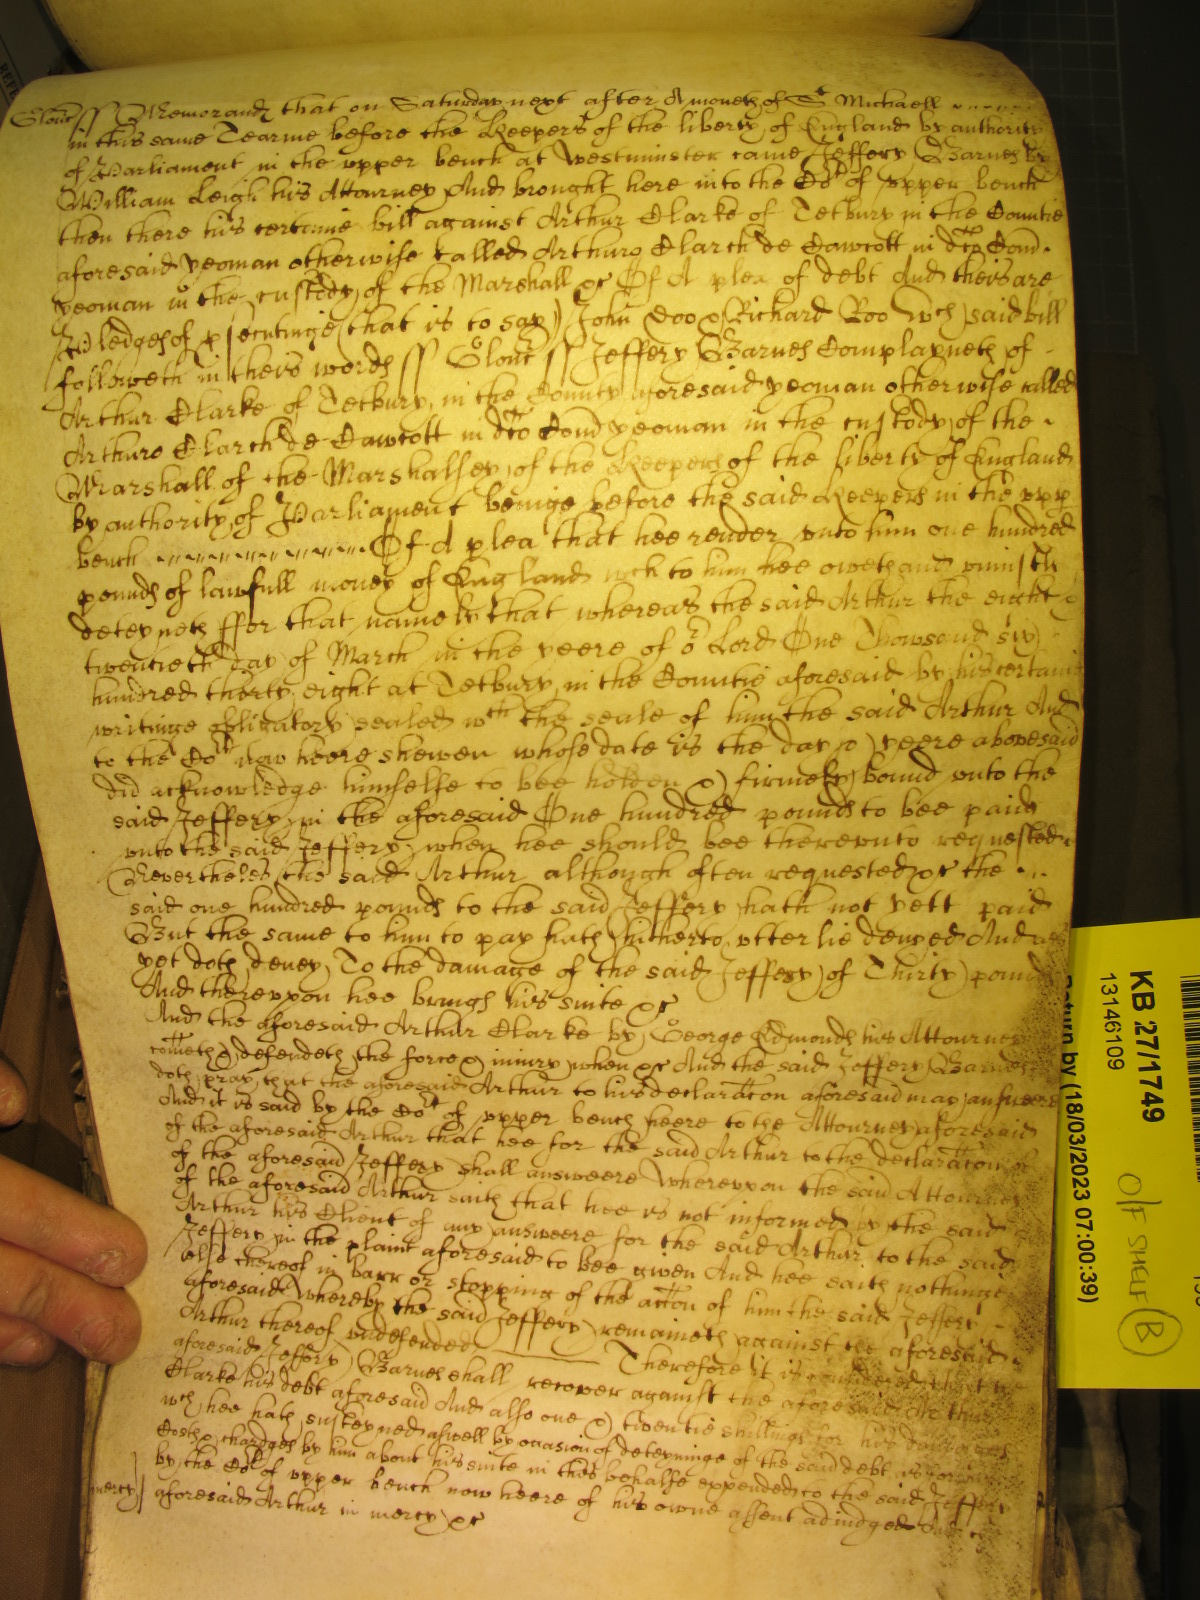 Glouc ss Memorand that on Saturday next after A moneth of St Michaell
in this same Tearme before the keepers of the liberty of England by authority
of Parliament in the upper bench at Westminster came Jeffery Barnes by
William Leigh his Attourney And brought here into the Cot of upper bench
then there his certaine bill against Arthur Clarke of Tetbury in the Countie
aforesaid yeoman otherwise called Arthuro Clarck de Cawcott in dco Com
yeoman in the custody of the Marshall &c Of A plea of debt And theis are
Pledges of psecutinge (that is to say) John Doo & Richard Roo wch said bill
followeth in theis words ss Glouc ss Jeffery Barnes Complayneth of
Arthur Clarke of Tetbury in the County aforesaid yeoman otherwise called
Arthuro Clarck de Cawcott in dco Com yeoman in the custody of the
Marshall of the Marshalsey of the keepers of the liberty of England
by authority of Parliament beinge before the said keepers in the upp
bench Of A plea that hee render unto him one hundred
pounds of lawfull money of England wch to him hee oweth and uniustly
deteyneth ffor that namely that whereas the said Arthur the eight &
twentieth day of March in the yeere of or Lord One Thowsand six
hundred thirty eight at Tetbury in the Countie aforesaid by his certaine
writinge obligatory sealed wth the seale of him the said Arthur And
to the Cot now heere shewen whose date is the day & yeere abovesaid
did acknowledge himselfe to bee holden & firmely bound unto the
said Jeffery in the aforesaid One hundred pounds to bee paid
unto the said Jeffery when hee should bee thereunto requested
Neverthelesse the said Arthur although often requested &c the
said one hundred pounds to the said Jeffery hath not yett paid
But the same to him to pay hath hitherto utterlie denyed And
yet doth deney To the damage of the said Jeffery of Thirty pounds
And thereupon hee brings his suite &c
And the aforesaid Arthur Clarke by George Edmonds his Attourney
cometh & defendeth the force & iniury when &c And the said Jeffery Barnes
doth pray that the aforesaid Arthur to his declaracon aforesaid may answere
And it is said by the Cot of upper bench heere to the Attourney aforesaid
of the aforesaid Arthur that hee for the said Arthur to the declaracon
of the aforesaid Jeffery shall answeere Whereupon the said Attourney
of the aforesaid Arthur saith that hee is not informed by the said
Arthur his Client of any answeere for the said Arthur to the said
Jeffery in the plaint aforesaid to bee given And hee saith nothinge
else thereof in barr or stopping of the accon of him the said Jeffery
aforesaid Whereby the said Jeffery remaineth against the aforesaid
Arthur thereof undefended Therefore it is considered that the
aforesaid Jeffery Barnes shall recover against the aforesaid Arthur
Clarke his debt aforesaid And also one & twentie shillings for his damages
wch hee hath susteyned aswell by occasion of deteyninge of the said debt as for his
Costs & chardges by him about his suite in this behalfe expended to the said Jeffery
by the Cot of upper bench now heere of his owne assent adiudged And the
mercy aforesaid Arthur in mercy &c
KB 27/1749
13146109
Return by (18/03/2023 07:00:39)
O/F SHELF B